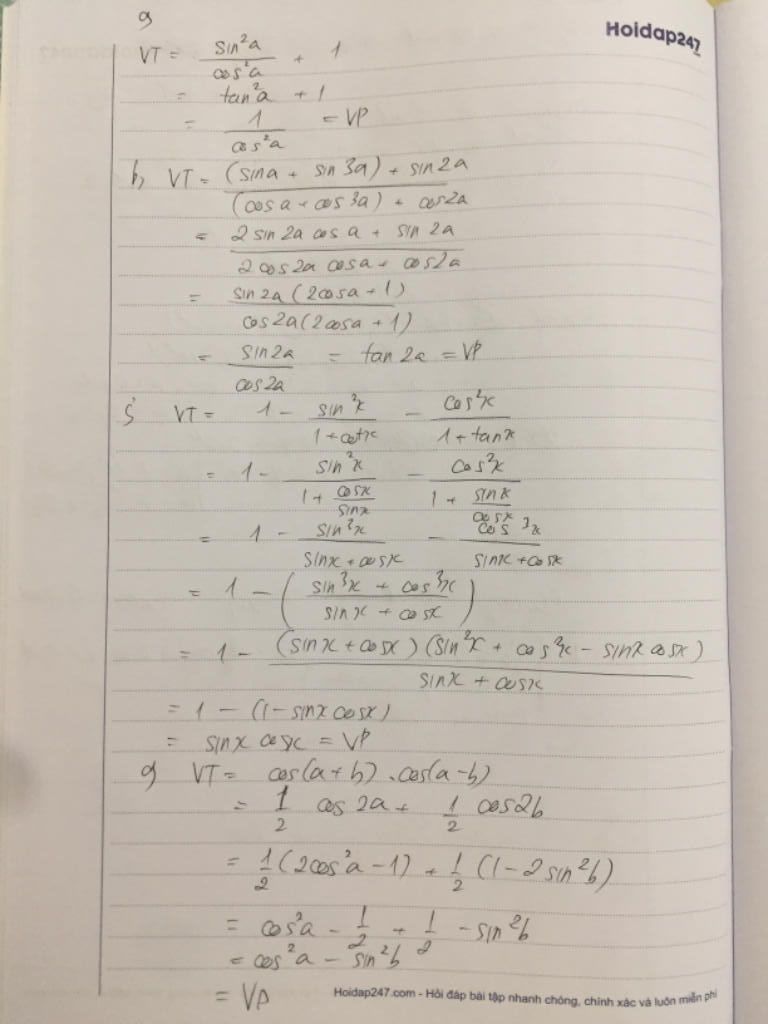 Hoidap247
a,
VT = sin²a / cos²a + 1
= tan²a + 1
= 1 / cos²a = VP
b, VT = (sina + sin3a) + sin2a / (cosa + cos3a) + cos2a
= 2 sin2a cosa + sin2a / 2 cos2a cosa + cos2a
= sin2a (2cosa + 1) / cos2a (2cosa + 1)
= sin2a / cos2a = tan2a = VP
VT = 1 - sin²x / 1 + cotx - cos²x / 1 + tanx
= 1 - sin²x / 1 + cosx / sinx - cos²x / 1 + sinx / cosx
= 1 - sin³x / sinx + cosx - cos³x / sinx + cosx
= 1 - ( sin³x + cos³x / sinx + cosx )
= 1 - (sinx + cosx) (sin²x + cos²x - sinx cosx) / sinx + cosx
= 1 - (1 - sinx cosx)
= sinx cosx = VP
VT = cos(a + b) . cos(a - b)
= 1/2 cos2a + 1/2 cos2b
= 1/2 (2cos²a - 1) + 1/2 (1 - 2 sin²b)
= cos²a - 1/2 + 1/2 - sin²b
= cos²a - sin²b
= VP
Hoidap247.com - Hỏi đáp bài tập nhanh chóng, chính xác và luôn miễn phí